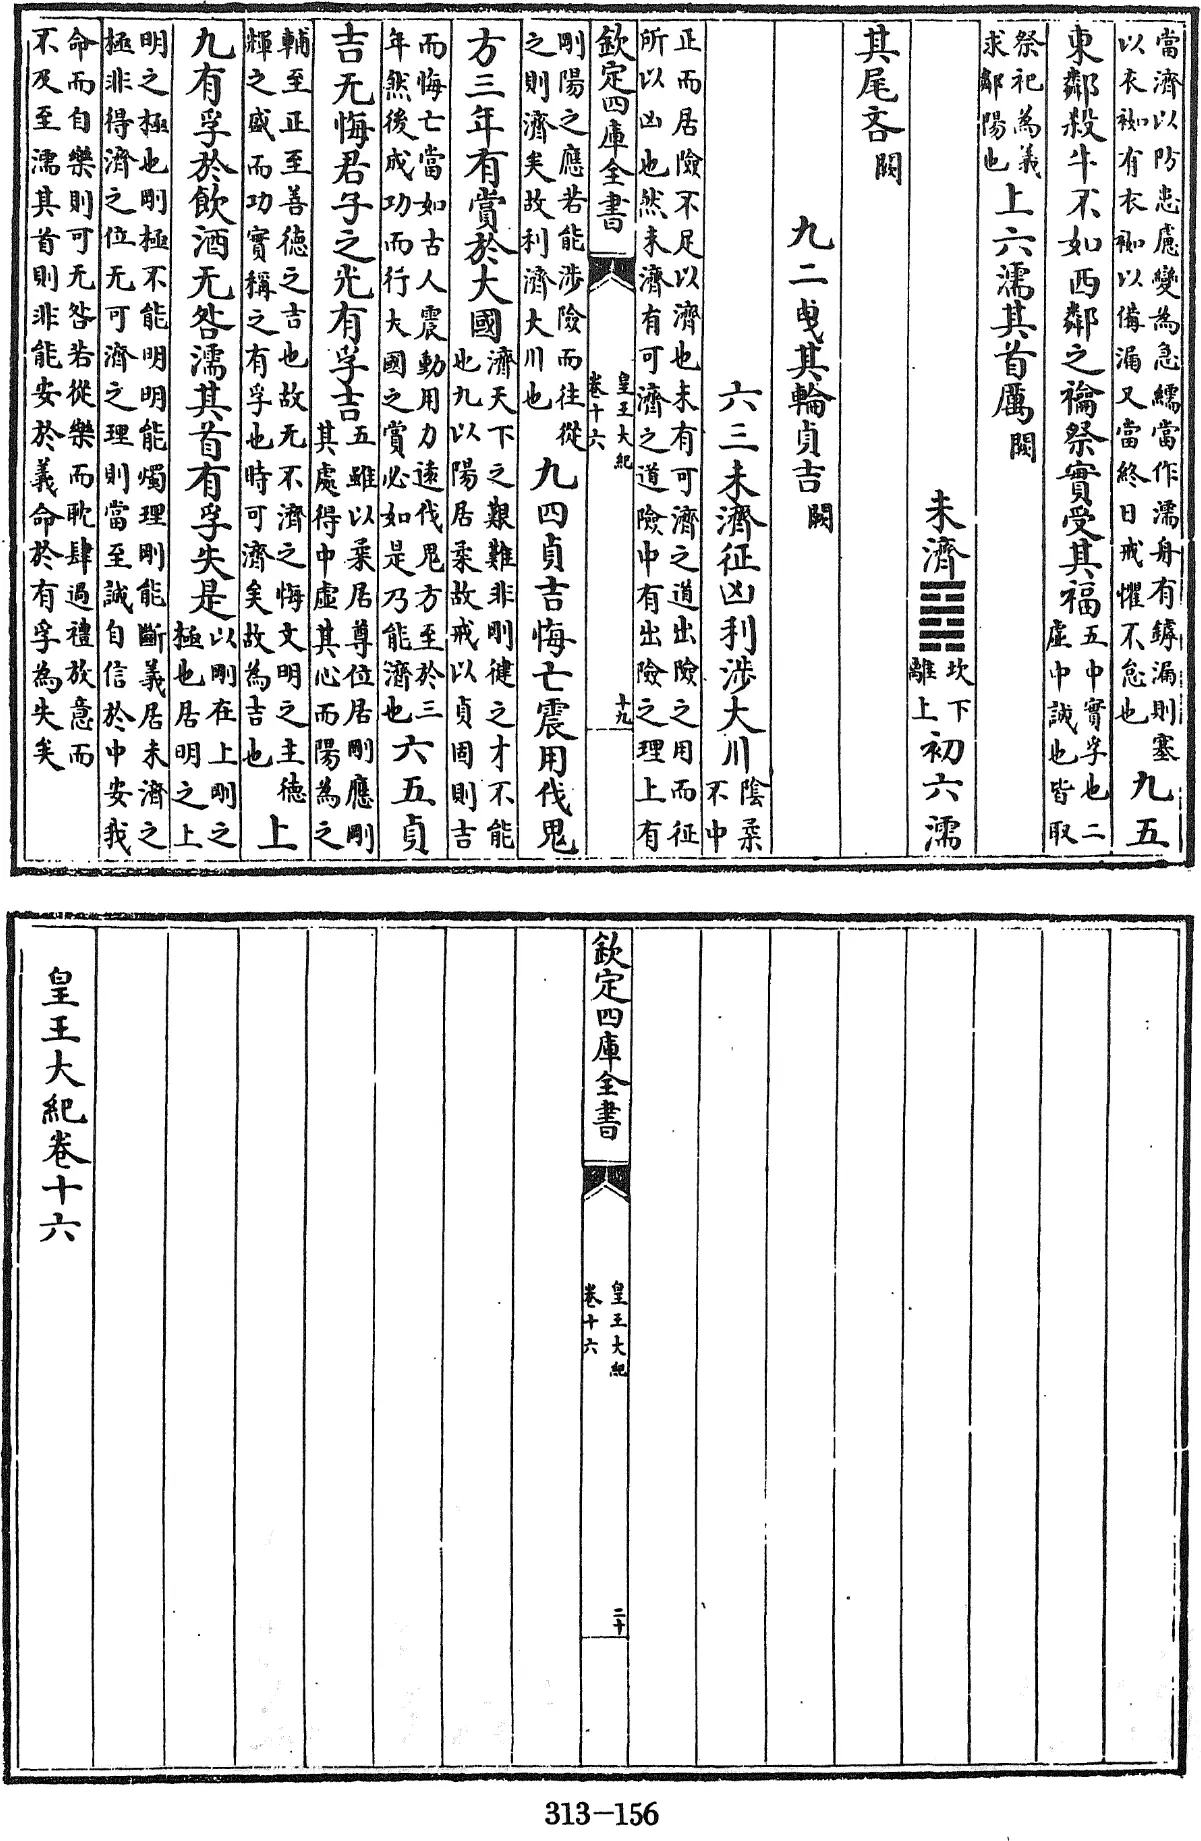 當濟以防患慮變為急繻當作濡舟有罅漏則塞
以衣袽有衣袽以備漏又當終日戒懼不怠也
九五
東鄰殺牛不如西鄰之禴祭實受其福
五中實孚也二
虛中誠也皆取
祭祀為義
求鄰陽也
上六濡其首厲
闕
未濟䷿
坎下
離上
初六濡
其尾吝
闕
九二曳其輪貞吉
闕
六三未濟征凶利涉大川
陰柔
不中
正而居險不足以濟也未有可濟之道出險之用而征
所以凶也然未濟有可濟之道險中有出險之理上有
欽定四庫全書
皇王大紀
卷十六
十九
剛陽之應若能涉險而往從
之則濟矣故利濟大川也
九四貞吉悔亡震用伐鬼
方三年有賞於大國
濟天下之艱難非剛健之才不能
也九以陽居柔故戒以貞固則吉
而悔亡當如古人震動用力遠伐鬼方至於三
年然後成功而行大國之賞必如是乃能濟也
六五貞
吉无悔君子之光有孚吉
五雖以柔居尊位居剛應剛
其處得中虛其心而陽為之
輔至正至善德之吉也故无不濟之悔文明之主德
輝之盛而功實稱之有孚也時可濟矣故為吉也
上
九有孚於飲酒无咎濡其首有孚失是
以剛在上剛之
極也居明之上
明之極也剛極不能明明能燭理剛能斷義居未濟之
極非得濟之位无可濟之理則當至誠自信於中安我
命而自樂則可无咎若從樂而耽肆過禮放意而
不及至濡其首則非能安於義命於有孚為失矣
欽定四庫全書
皇王大紀
卷十六
二十
皇王大紀卷十六
313-156